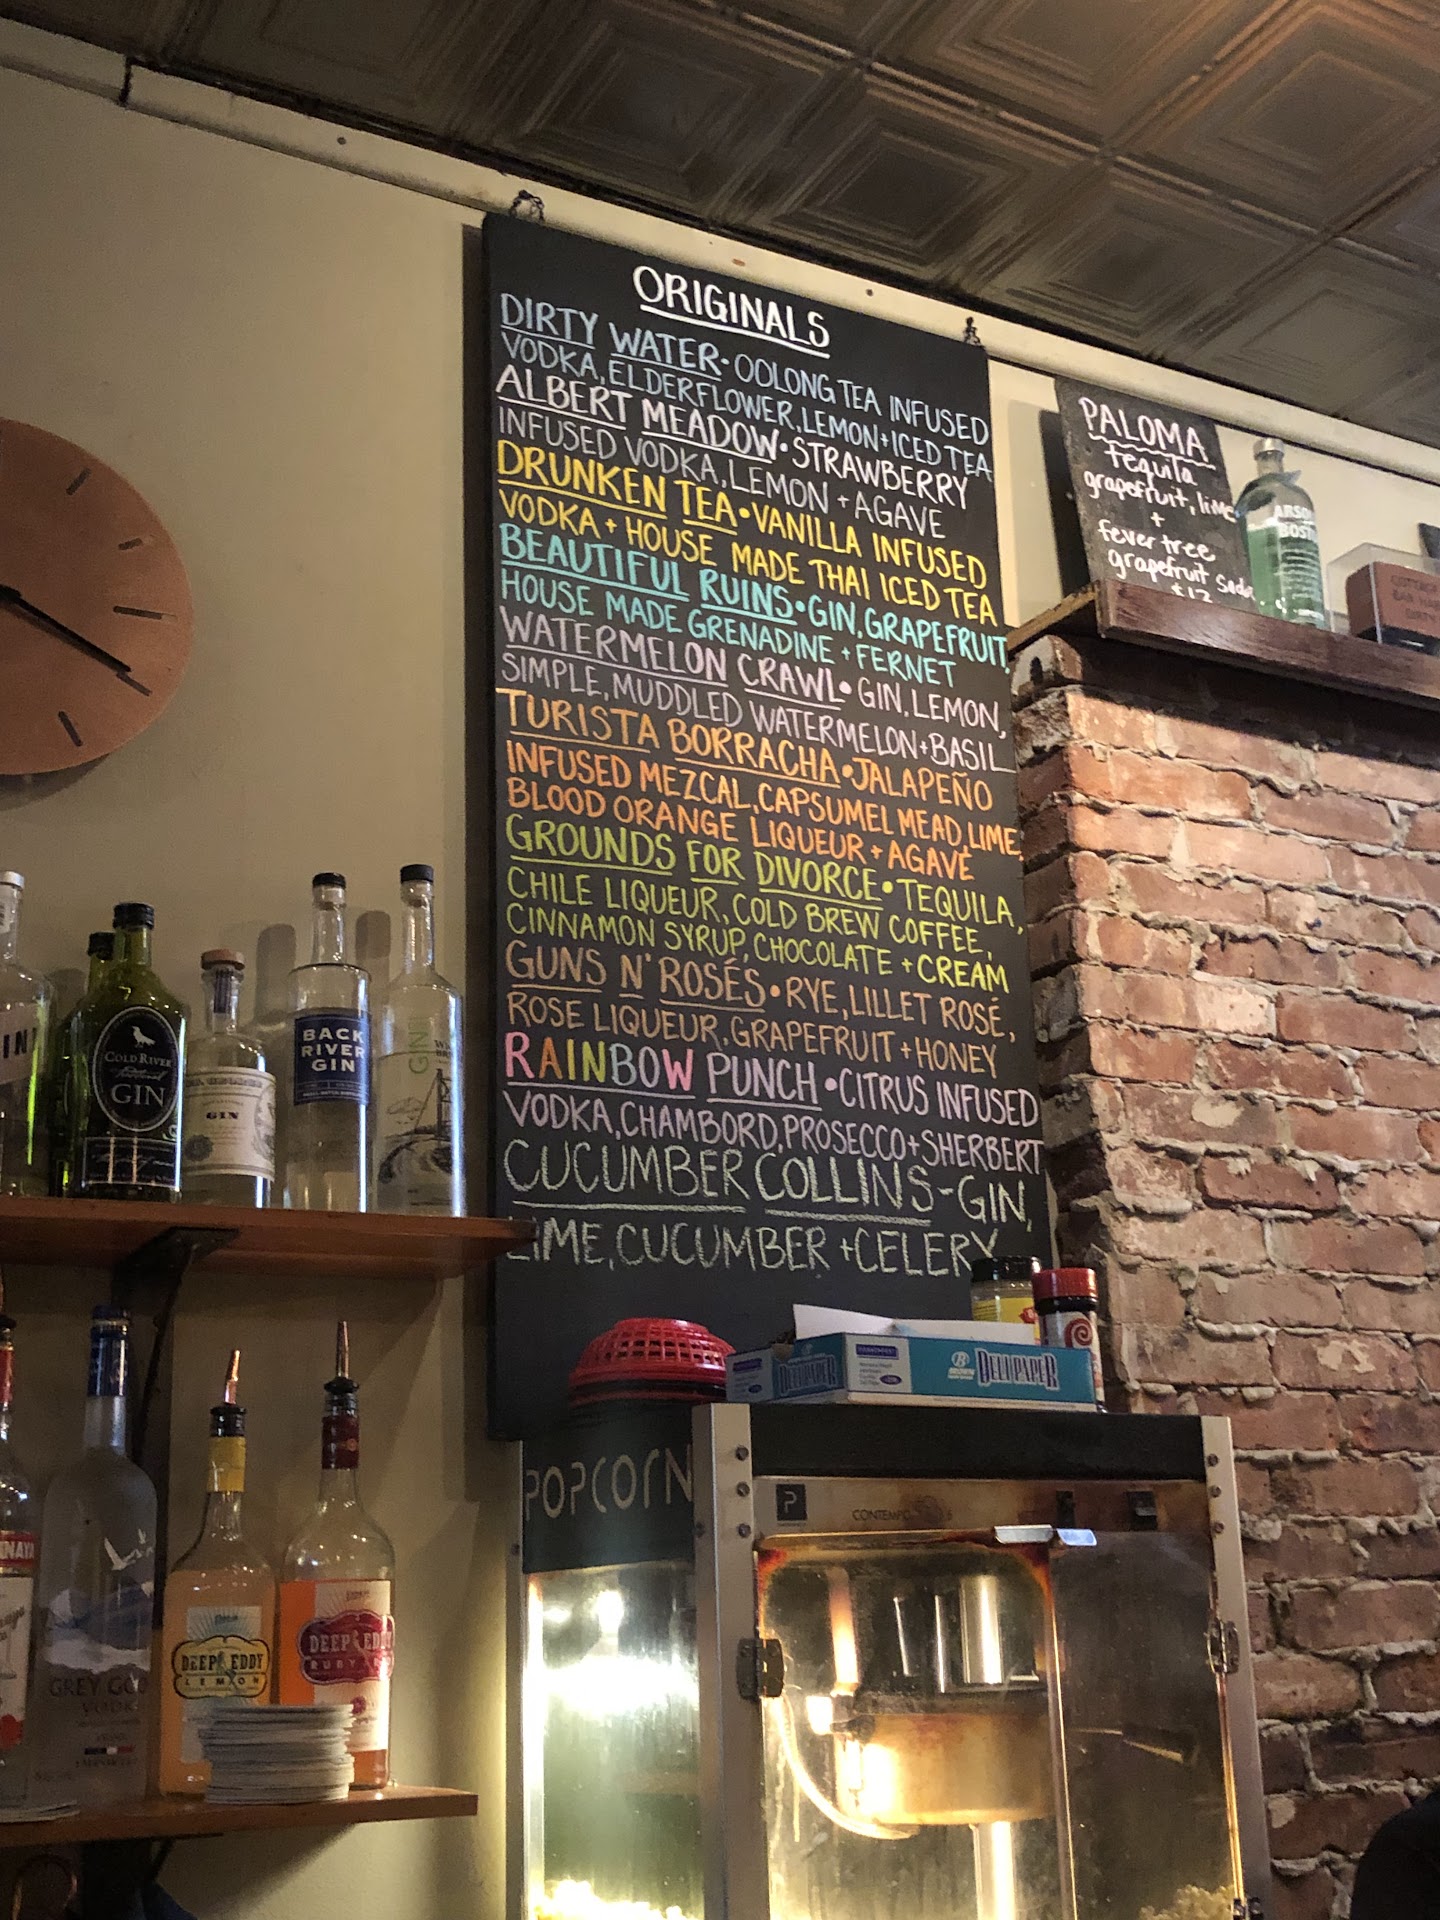 ORIGINALS
DIRTY WATER • OOLONG TEA INFUSED
VODKA, ELDERFLOWER, LEMON + ICED TEA
ALBERT MEADOW • STRAWBERRY
INFUSED VODKA, LEMON + AGAVE
DRUNKEN TEA • VANILLA INFUSED
VODKA + HOUSE MADE THAI ICED TEA
BEAUTIFUL RUINS • GIN, GRAPEFRUIT,
HOUSE MADE GRENADINE + FERNET
WATERMELON CRAWL • GIN, LEMON,
SIMPLE, MUDDLED WATERMELON + BASIL
TURISTA BORRACHA • JALAPEÑO
INFUSED MEZCAL, CAPSUMEL MEAD, LIME,
BLOOD ORANGE LIQUEUR + AGAVÉ
GROUNDS FOR DIVORCE • TEQUILA,
CHILE LIQUEUR, COLD BREW COFFEE,
CINNAMON SYRUP, CHOCOLATE + CREAM
GUNS N' ROSÉS • RYE, LILLET ROSÉ,
ROSE LIQUEUR, GRAPEFRUIT + HONEY
RAINBOW PUNCH • CITRUS INFUSED
VODKA, CHAMBORD, PROSECCO + SHERBERT
CUCUMBER COLLINS - GIN,
LIME, CUCUMBER + CELERY
PALOMA
tequila
grapefruit, lime
+
fever tree
grapefruit soda
$12
COLD RIVER
GIN
GIN
BACK
RIVER
GIN
GIN
GREY GOO
VODKA
DEEP EDDY
LEMON
DEEP EDDY
RUBY
DELI PAPER
DELI PAPER
POPCORN
P
CONTEMPO